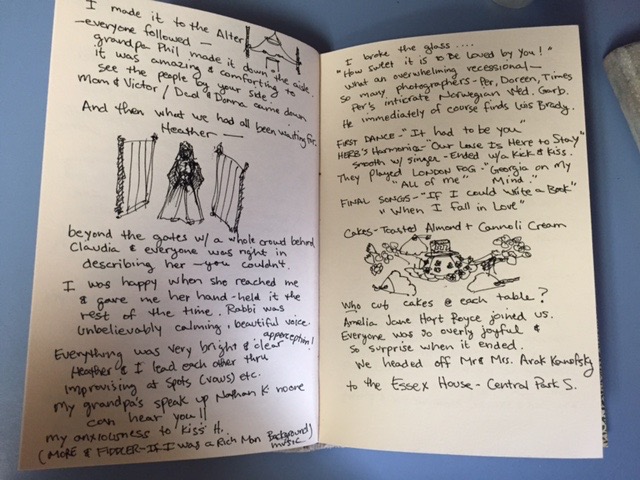 I made it to the Alter
-everyone followed-
grandpa Phil made it down the aisle.
it was amazing & comforting to
see the people by your side
Mom & Victor / Dad & Donna came down
And then what we had all been waiting for.
Heather —
beyond the gates w/ a whole crowd behind
Claudia & everyone was right in
describing her - you couldn't.
I was happy when she reached me
& gave me her hand - held it the
rest of the time. Rabbi was
unbelievably calming, beautiful voice.
apperception!
Everything was very bright & clear
Heather & I lead each other thru
improvising at spots (vows) etc.
my grandpa's speak up Nathan K. noone
can hear you!!
my anxiousness to kiss H..
(MORE & FIDDLER-IF I was a Rich Man Background)
music
I broke the glass ....
"How sweet it is to be loved by you!"
what an overwhelming recessional—
so many photographers - Per, Doreen, Times
Per's intricate Norwegian Wed. Garb.
He immediately of course finds Luis Brady.
FIRST DANCE - "It had to be you"
HERB'S Harmonica - "Our Love Is Here to Stay"
smooth w/ singer - Ended w/a Kick & Kiss.
They played LONDON FOG - "Georgia on my
"All of me" Mind."
FINAL SONGS - "If I could Write a Book"
"When I fall in Love"
Cakes - Toasted Almond + Cannoli Cream
Who cut cakes @ each table?
Amelia Jane Hart Royce joined us.
Everyone was so overly joyful &
so surprise when it ended.
We headed off Mr & Mrs.
to the Essex House - Central Park S.